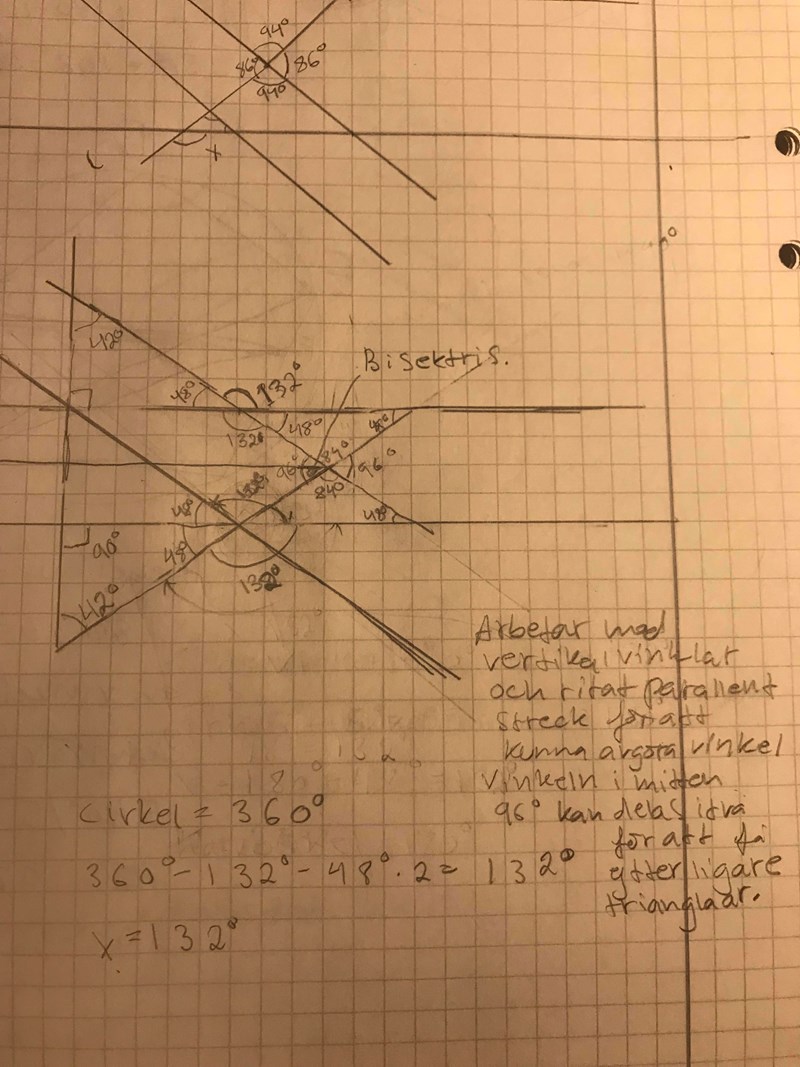 94°
86°
86°
94°
x
Bisektris.
42°
132°
48°
132°
48°
48°
84°
96°
96°
84°
132°
48°
48°
48°
90°
132°
42°
Arbetar med
vertikalvinklar
och ritat parallent
streck för att
kunna avgöra vinkel
vinkeln i mitten
96° kan delas i två
för att få
ytterligare
trianglaar.
Cirkel = 360°
360° - 132° - 48° · 2 = 132°
x = 132°